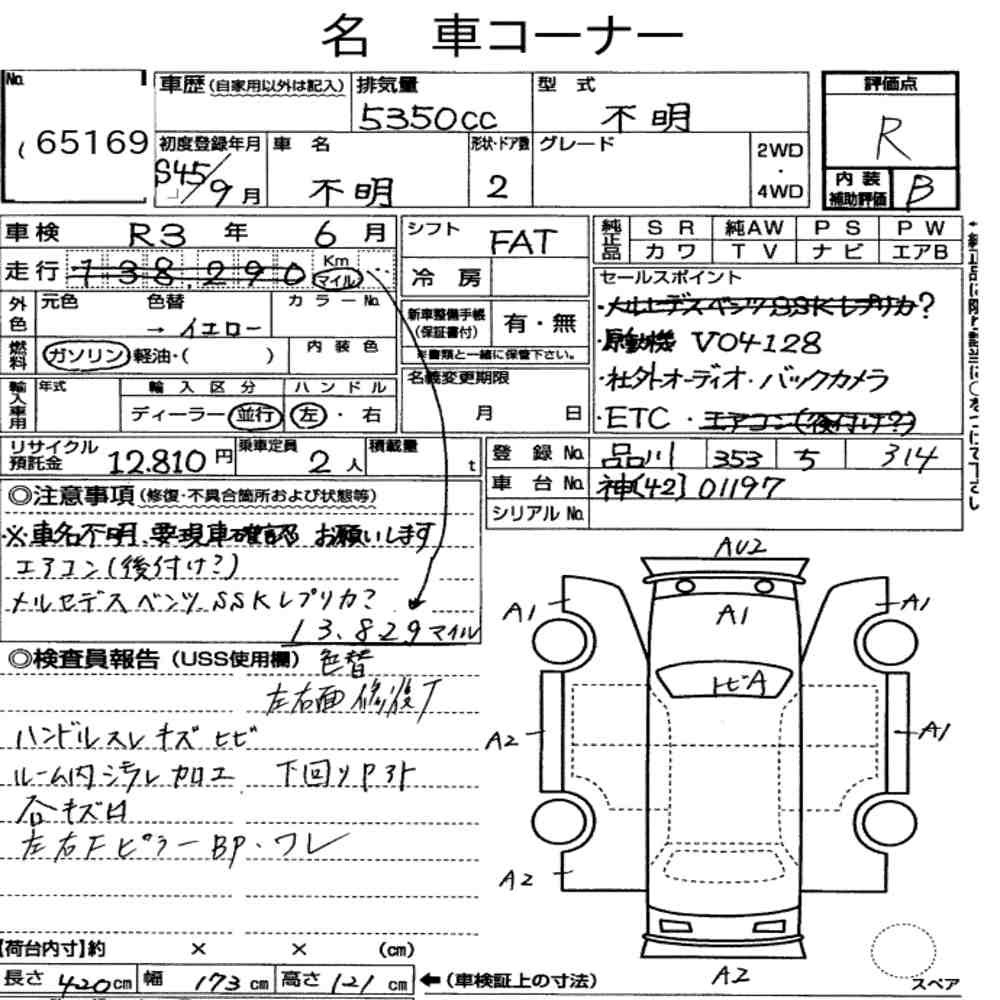 名 車コーナー
No. 65169
車歴(自家用以外は記入) 排気量 5350cc 型式 不明 評価点 R
初度登録年月 S45/9月 車名 不明 形状・ドア数 2 グレード 2WD・4WD 内装補助評価 B
車検 R3年 6月 シフト FAT 純正品 SR 純AW PS PW
カワ TV ナビ エアB
走行 138,290 Km マイル 冷房
セールスポイント
外色 元色 色替 → イエロー カラーNo.
・メルセデスベンツSSKレプリカ?
新車整備手帳(保証書付) 有・無
※書類と一緒に保管下さい。
・原動機 V04128
燃料 ガソリン 軽油・( ) 内装色
・社外オーディオ・バックカメラ
輸入車用 年式 輸入区分 ハンドル 名義変更期限
ディーラー 並行 左・右 月 日
・ETC・エアコン(後付け?)
リサイクル預託金 12.810円 乗車定員 2人 積載量 t
登録No. 品川 353 ち 314
車台No. 神[42]01197
シリアルNo.
◎注意事項(修復・不具合箇所および状態等)
※車名不明、要現車確認お願いします
エアコン(後付け?)
メルセデスベンツSSKレプリカ?
13.829マイル
◎検査員報告(USS使用欄) 色替
左右面修復
ハンドルスレキズヒビ
ルーム内汚レ加工 下回り
左右Fピラー BP・ワレ
AU2
A1 A1 A1
トビA
A2 A1
A2
A2
スペア
【荷台内寸】約 × × (cm)
長さ 420cm 幅 173cm 高さ 121cm ←(車検証上の寸法)